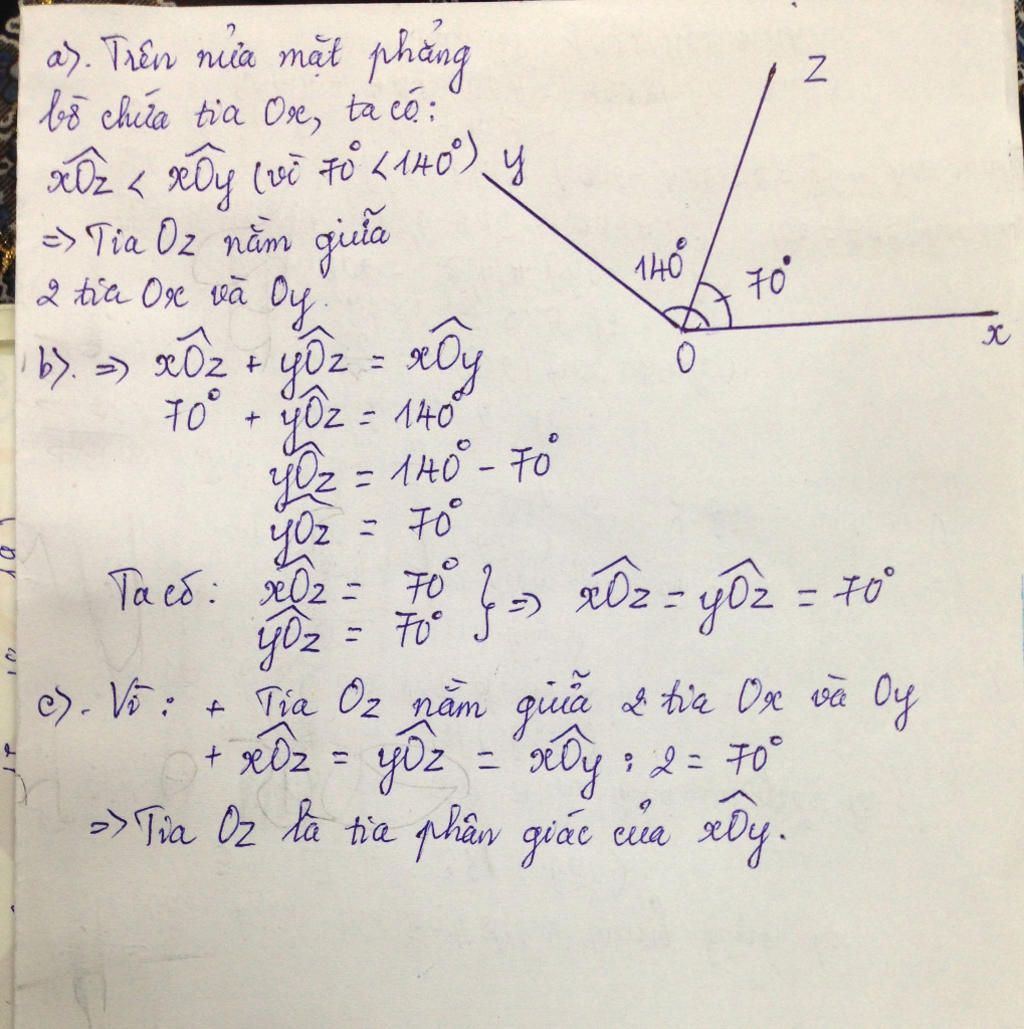 a). Trên nửa mặt phẳng
bờ chứa tia Ox, ta có:
xÔz < xÔy (vì 70° < 140°)
=> Tia Oz nằm giữa
2 tia Ox và Oy.
z
y
140°
70°
O
x
b). => xÔz + yÔz = xÔy
70° + yÔz = 140°
yÔz = 140° - 70°
yÔz = 70°
Ta có: xÔz = 70°
yÔz = 70° } => xÔz = yÔz = 70°
c). Vì: + Tia Oz nằm giữa 2 tia Ox và Oy
+ xÔz = yÔz = xÔy : 2 = 70°
=> Tia Oz là tia phân giác của xÔy.